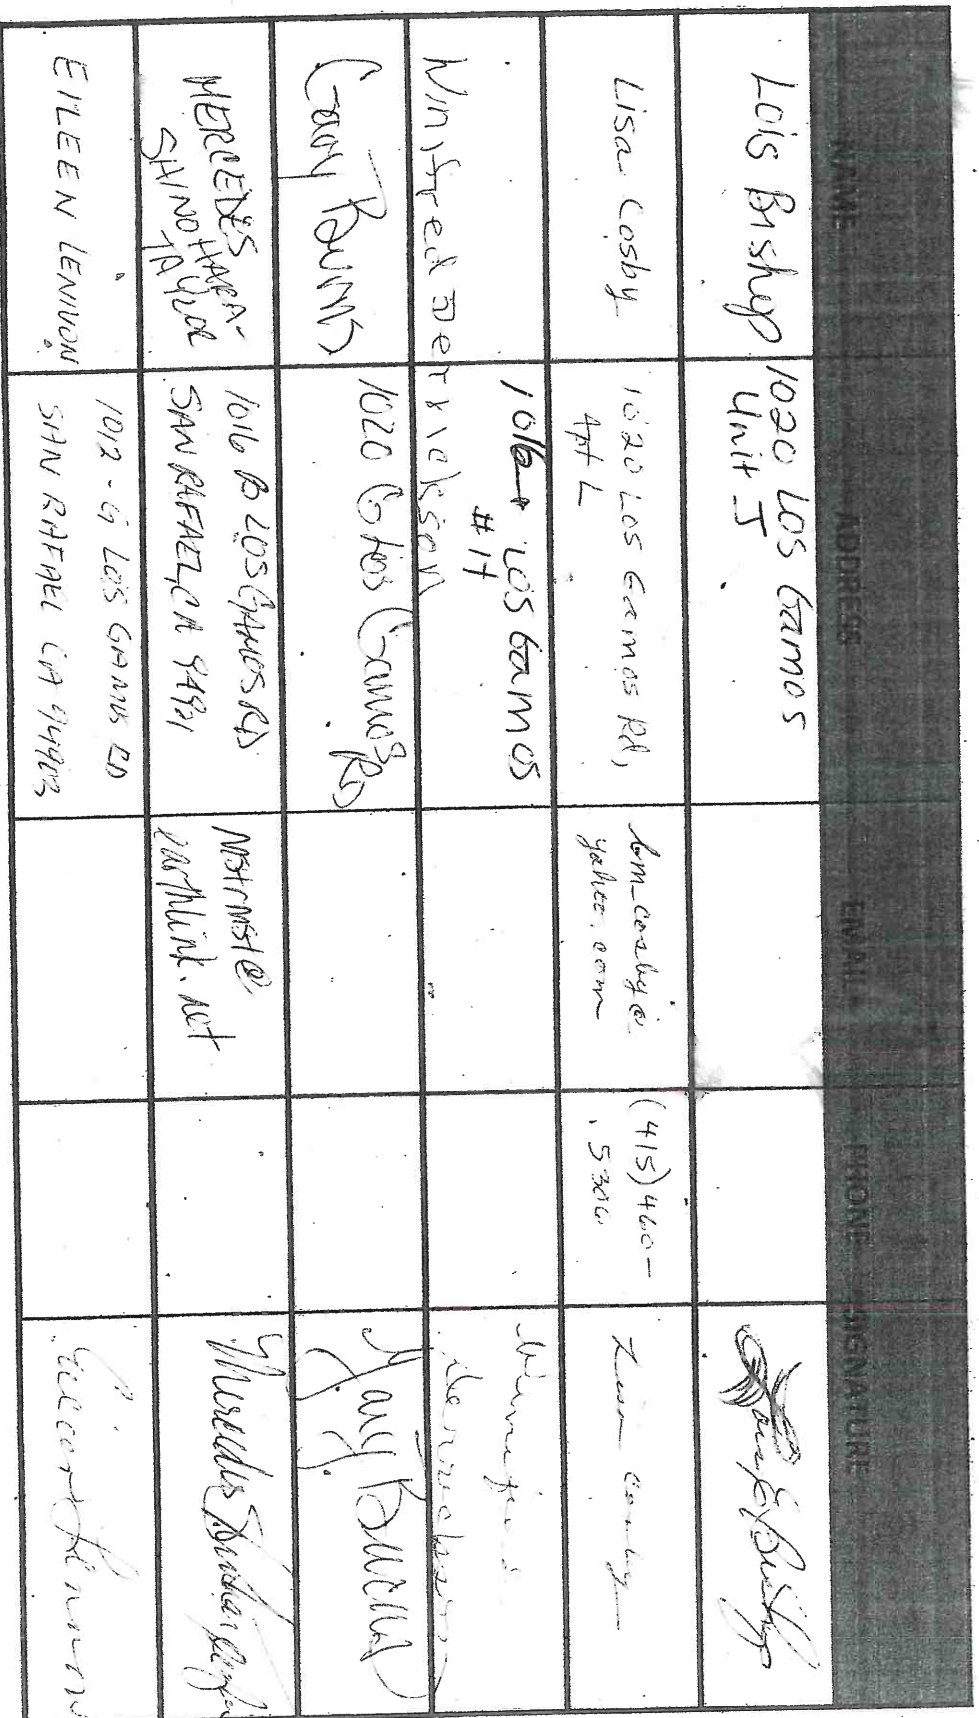 NAME ADDRESS EMAIL PHONE SIGNATURE
Lois Bishop
1020 Los Gamos
Unit J
Lisa Cosby
1020 Los Gamos Rd,
Apt L
lm_cosby@
yahoo.com
(415) 460-
5306
Lisa Cosby
Winifred Derrickson
Los Gamos
#H
Winifred
Derrickson
Gary
1020 G Los Gamos Rd
Gary
MERCEDES
SHINOHARA-
TAYLOR
1016 B LOS GAMOS RD
SAN RAFAEL, CA
earthlink.net
EILEEN LENNON
1012-G LOS GAMOS RD
SAN RAFAEL CA 94903
Eileen Lennon